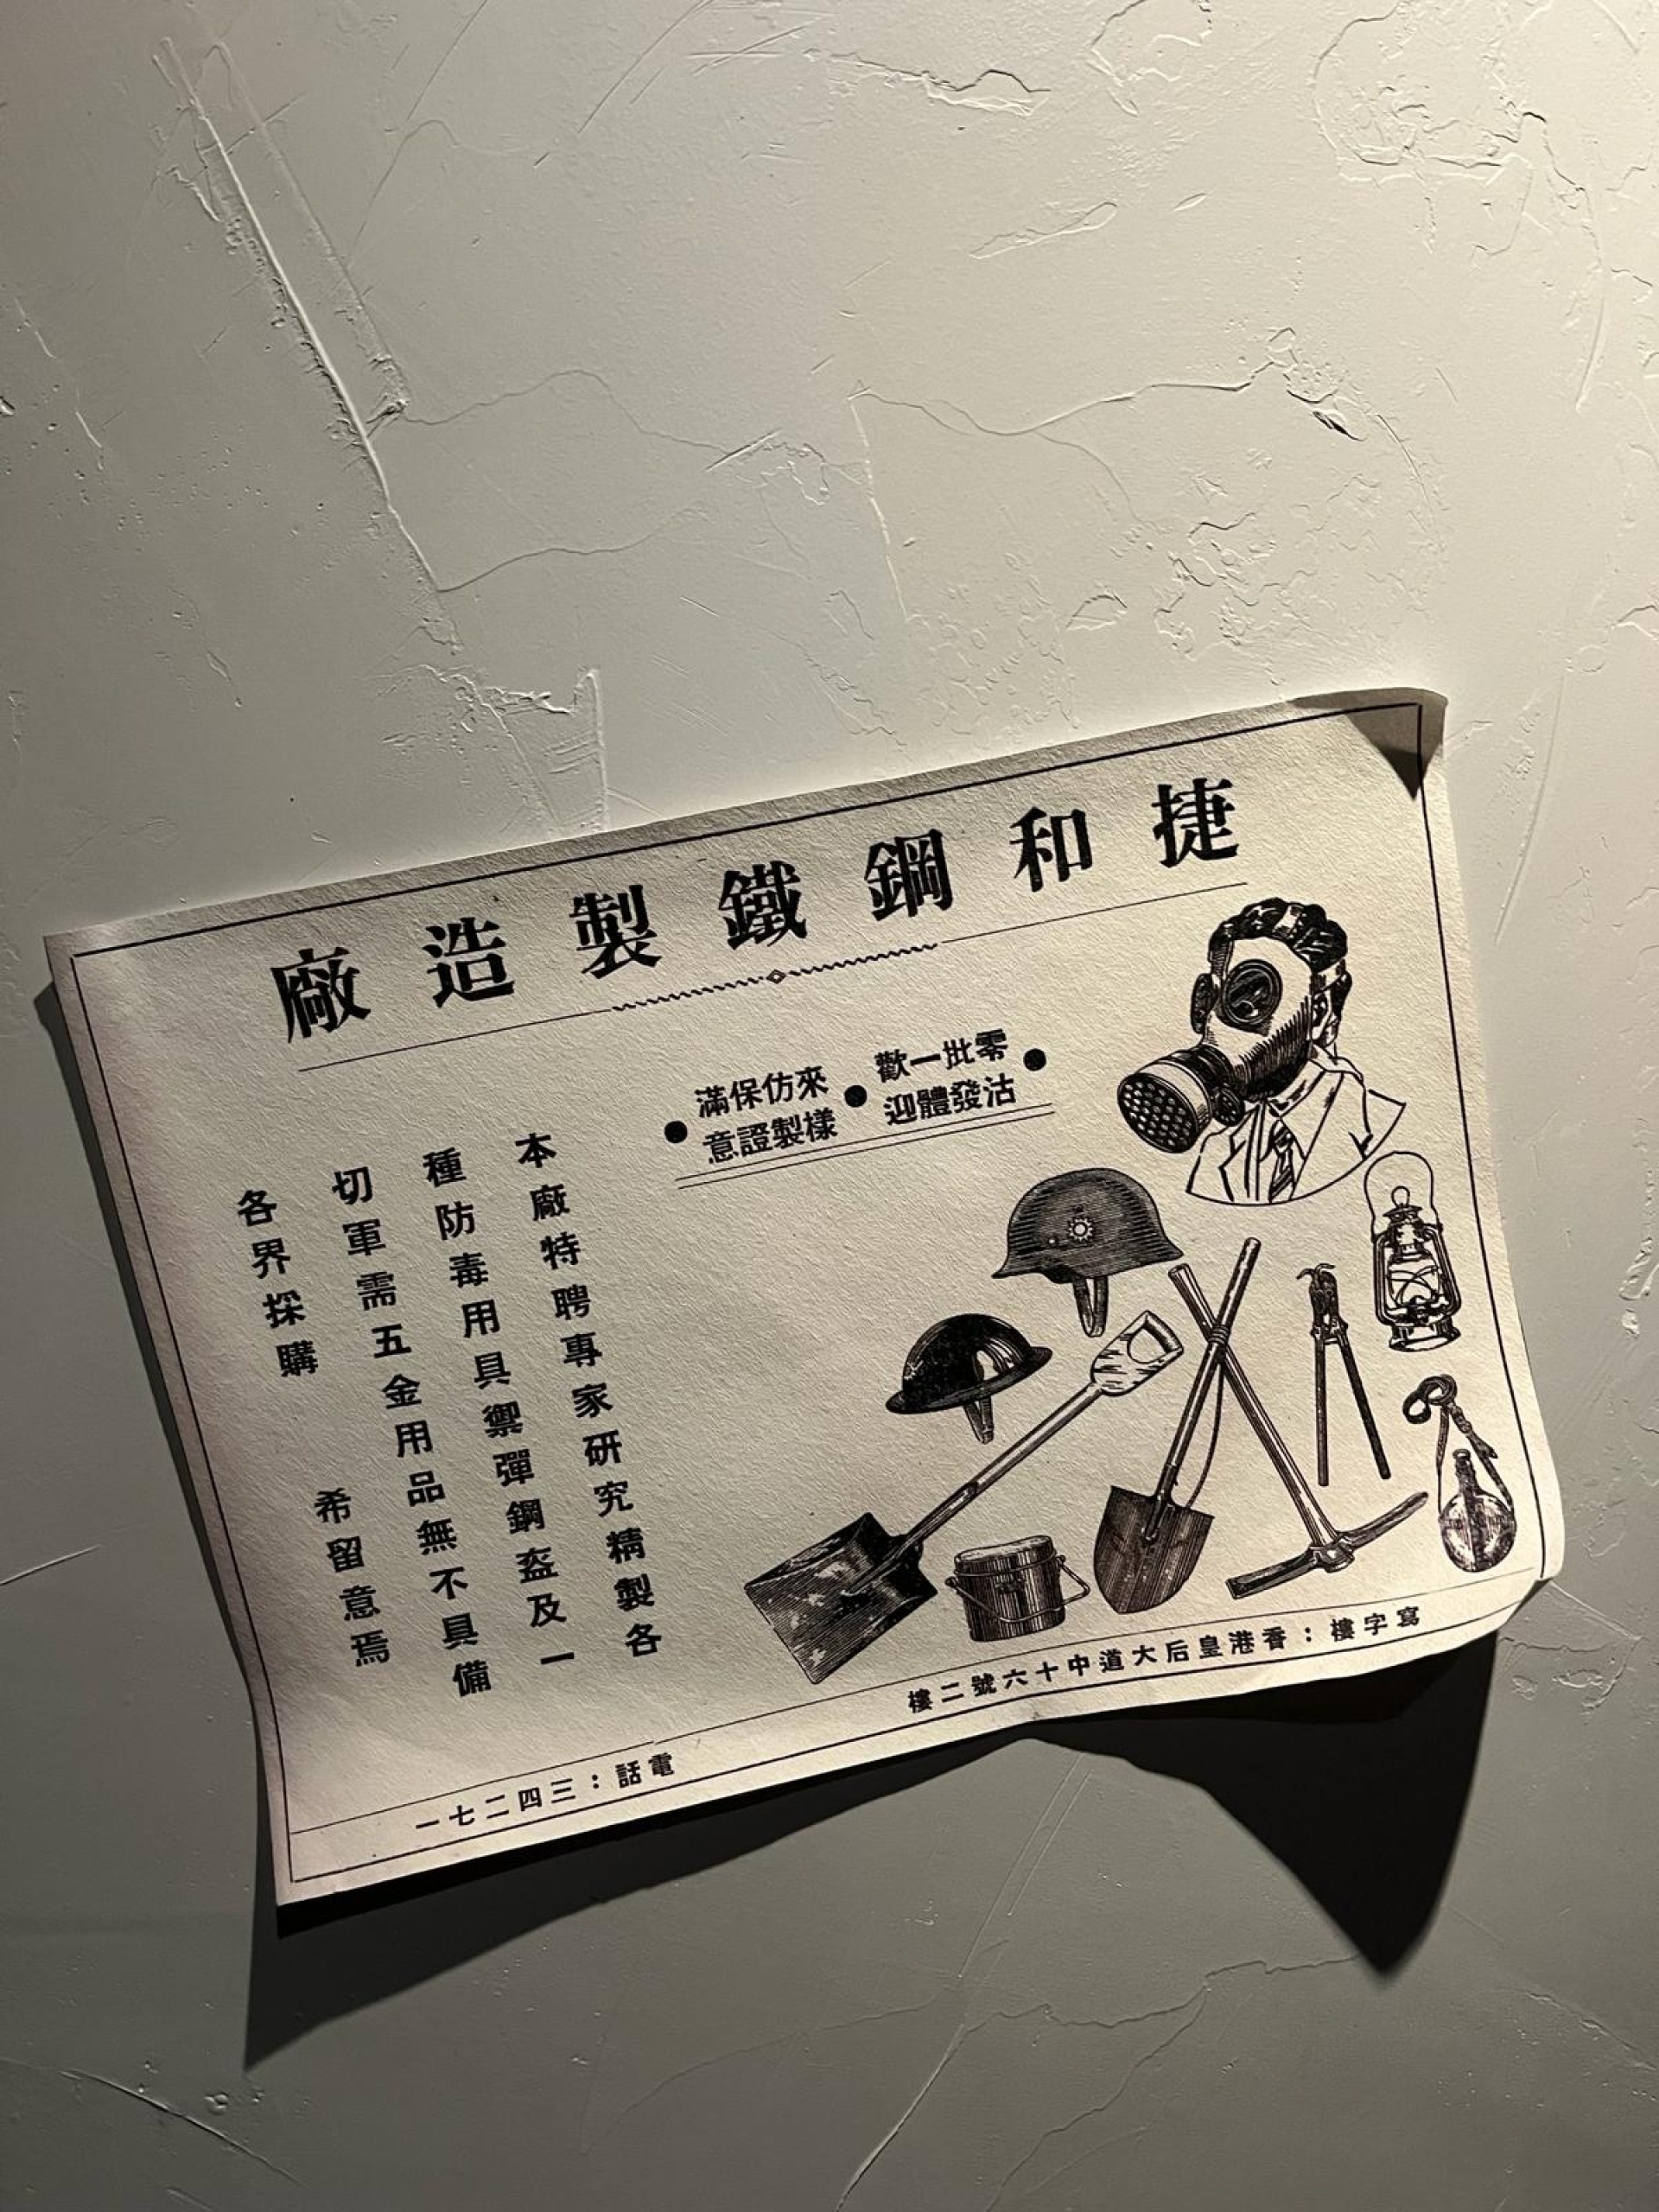 捷和鋼鐵製造廠
零沽批發一體歡迎
來樣仿製保證滿意
本廠特聘專家研究精製各
種防毒用具禦彈鋼盔及一
切軍需五金用品無不具備
各界採購　希留意焉
寫字樓：香港皇后大道中十六號二樓
電話：三四二七一